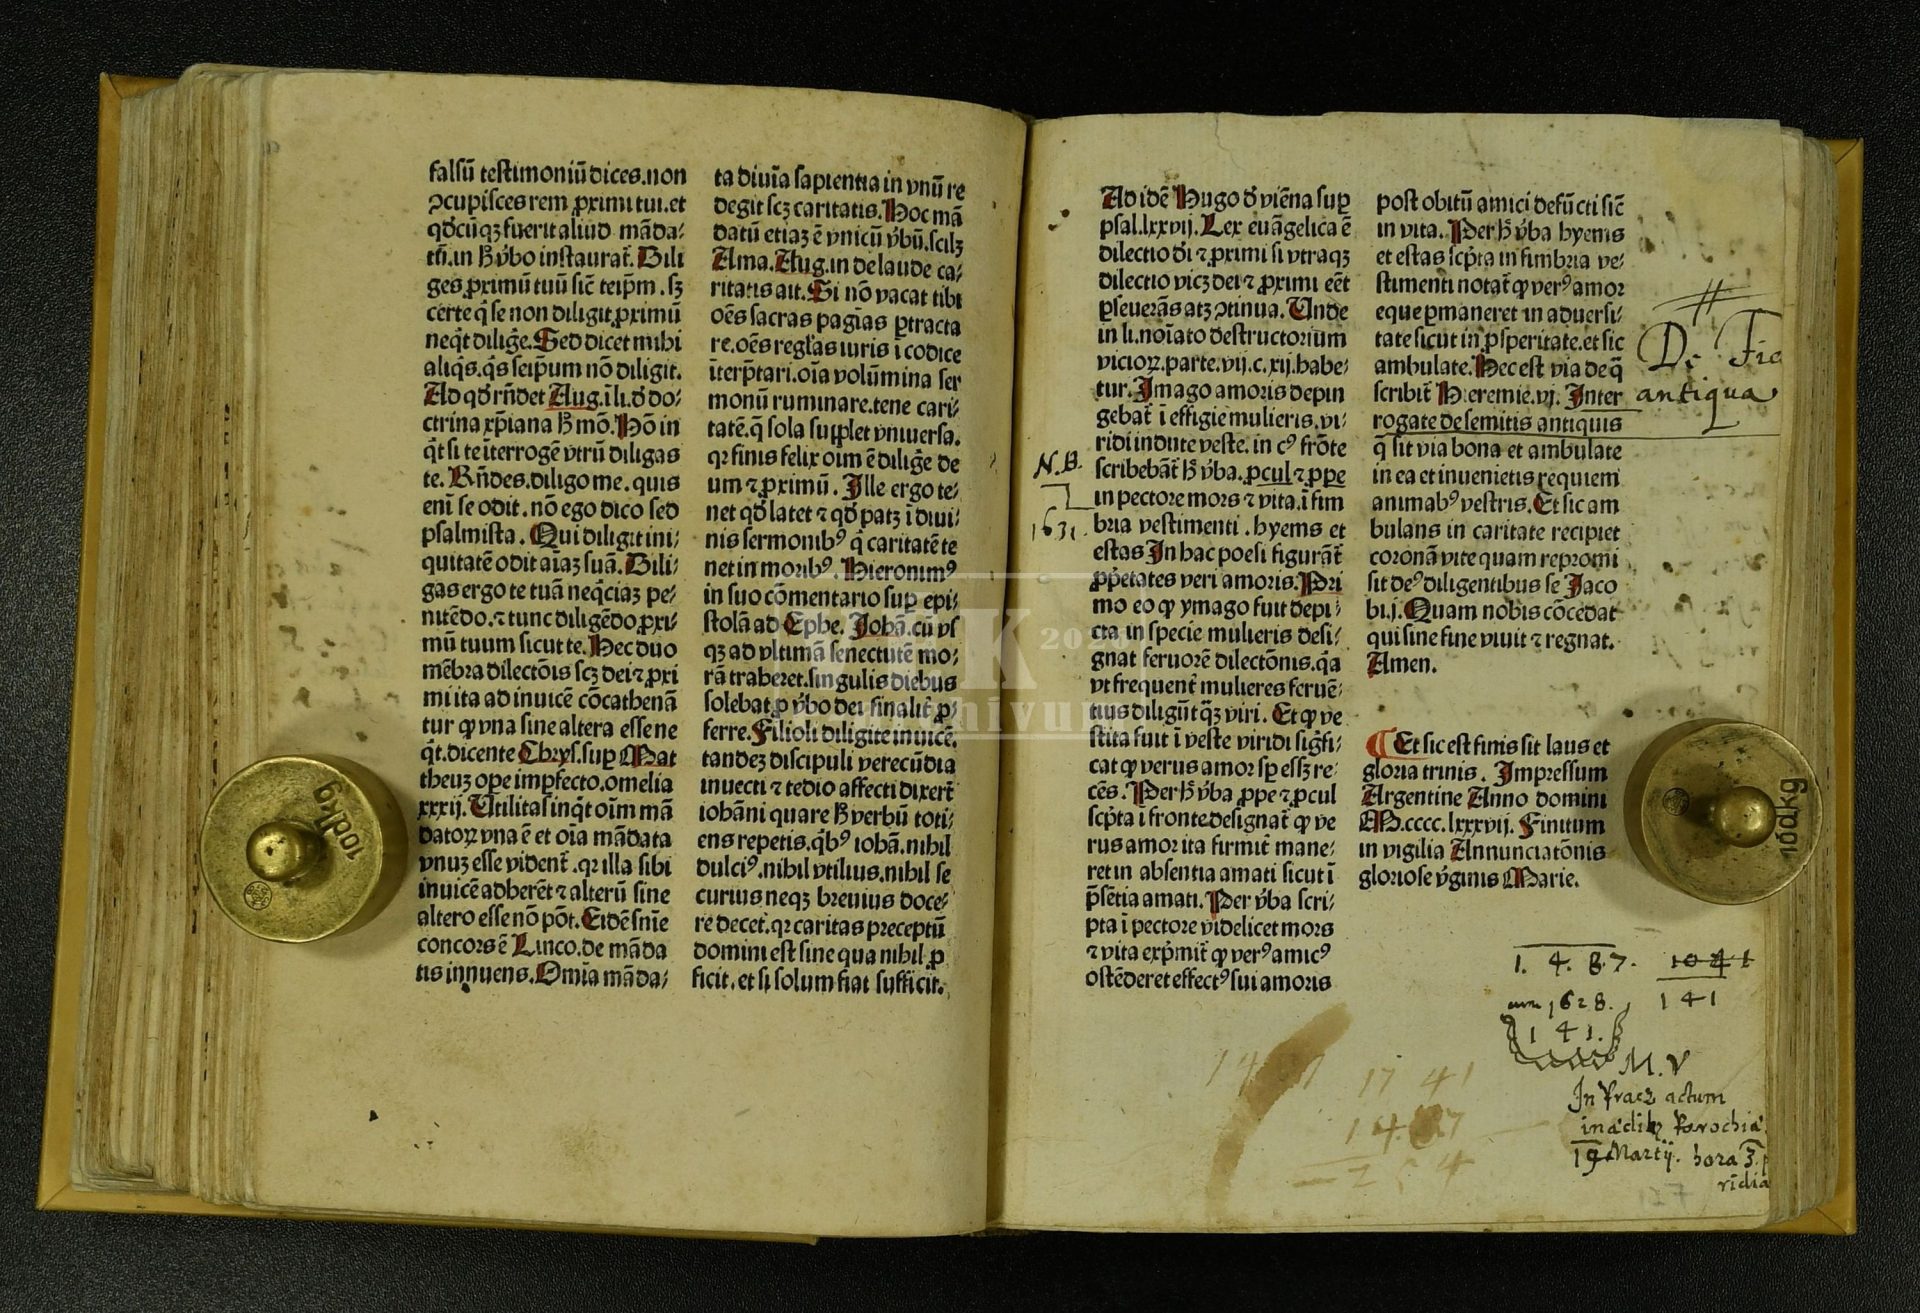 falsū testimoniū dices. non
ↄcupisces rem ꝓximi tui. et
qḋcūqꝫ fuerit aliud māda-
tū. in h̄ v̓bo instaurat᷑. Dili
ges ꝓximū tuū sic̄ teip̄m. sꝫ
certe q̇ se non diligit ꝓximū
neq̇t dilig̓e. Sed dicet mihi
aliq̇s. q̇s seip̄um nō diligit.
Ad qḋ rn̄det Aug. ī li. d̓ do-
ctrina xp̄iana h̄ mō. Nō in
q̇t si te īterrogē vtrū diligas
te. Rn̄des. diligo me. quis
enī se odit. nō ego dico sed
psalmista. Qui diligit ini-
quitatē odit aīaꝫ suā. Dili-
gas ergo te tuā neq̇ciaꝫ pe-
nitēdo. ⁊ tunc diligēdo ꝓxi-
mū tuum sicut te. Hec duo
mēbra dilectōis scꝫ dei ⁊ ꝓxi
mi ita ad inuicē cōcathenā
tur ꝙ vna sine altera esse ne
q̇t. dicente Chrys. suꝑ Mat
theuꝫ oꝑe imꝑfecto. omelia
xxxij. Utilitas inq̇t oīm mā
datoꝝ vna ē et oīa mādata
vnuꝫ esse vident᷑. qꝛ illa sibi
inuicē adherēt ⁊ alterū sine
altero esse nō pōt. Eidē snīe
concors ē Linco. de māda
tis innuens. Omīa māda-
ta diuīa sapientia in vnū re
degit scꝫ caritatis. Hoc mā
datū etiaꝫ ē vnicū v̓bū. scilꝫ
Ama. Aug. in de laude ca-
ritatis ait. Si nō vacat tibi
oēs sacras pagīas ꝑtracta
re. oēs regl̓as iuris ī codice
īterp̄tari. oīa volūmina ser
monū ruminare. tene cari-
tatē. q̄ sola supplet vniuersa.
qꝛ finis felix oīm ē dilig̓e de
um ⁊ ꝓximū. Ille ergo te-
net qḋ latet ⁊ qḋ patꝫ ī diui-
nis sermonibꝰ q̇ caritatē te
net in moribꝰ. Hieronimꝰ
in suo cōmentario suꝑ epi-
stolā ad Ephe. Johā. cū vs
qꝫ ad vltimā senectutē mo-
rā traheret. singulis diebus
solebat ꝓ v̓bo dei sinalit᷑ ꝓ-
ferre. Filioli diligite inuicē.
tandeꝫ discipuli verecūdia
inuecti ⁊ tedio affecti dixer̄t
iohāni quare h̄ verbū toti-
ens repetis. q̇bꝰ iohā. nihil
dulciꝰ. nihil vtilius. nihil se
curius neqꝫ breuius doce-
re decet. qꝛ caritas preceptū
domini est sine qua nihil ꝓ
ficit. et si solum fiat sufficit.
Ad idē Hugo d̓ viēna suꝑ
psal. lxxvij. Lex euāgelica ē
dilectio d̓i ⁊ ꝓximi si vtraqꝫ
dilectio vicꝫ dei ⁊ ꝓximi eēt
ꝑseuerās atqꝫ ↄtinua. Unde
in li. noīato destructorium
vicioꝝ. parte. vij. c. xij. habe-
tur. Imago amoris depin
gebat᷑ ī effigie mulieris. vi-
ridi indute veste. in cꝰ frōte
scribebāt᷑ h̄ v̓ba. ꝓcul ⁊ ꝓpe
in pectore mors ⁊ vita. ī fim
bria vestimenti. hyems et
estas In hac poesi figurāt᷑
ꝓp̄etates veri amoris. Pri
mo eo ꝙ ymago fuit depi-
cta in specie mulieris desi-
gnat feruorē dilectōnis. q̄a
vt frequent᷑ mulieres feruē-
tius diligūt q̄ꝫ viri. Et ꝙ ve
stita fuit ī veste viridi sig̓fi-
cat ꝙ verus amor sꝑ essꝫ re-
cēs. Per h̄ v̓ba ꝓpe ⁊ ꝓcul
sc̓pta ī fronte designat᷑ ꝙ ve
rus amor ita firmit᷑ mane-
ret in absentia amati sicut ī
p̄sētia amati. Per v̓ba scri-
pta ī pectore videlicet mors
⁊ vita exp̓mit᷑ ꝙ verꝰ amicꝰ
ostēderet effectꝰ sui amoris
post obitū amici defūcti sic̄
in vita. Per h̄ v̓ba hyems
et estas sc̓pta in fimbria ve-
stimenti notat᷑ ꝙ verꝰ amor
eque ꝑmaneret in aduersi-
tate sicut in ꝓsperitate. et sic
ambulate. Hec est via de q̄
scribit᷑ Hieremie. vj. Inter
rogate de semitis antiquis
q̄ sit via bona et ambulate
in ea et inuenietis requiem
animabꝰ vestris. Et sic am
bulans in caritate recipiet
coronā vite quam repromi
sit deꝰ diligentibus se Jaco
bi. j. Quam nobis cōcedat
qui sine fine viuit ⁊ regnat.
Amen.
¶ Et sic est finis sit laus et
gloria trinis. Impressum
Argentine Anno domini
M.cccc.lxxxvij. Finitum
in vigilia Annunciatōnis
gloriose v̓ginis Marie.
N.B.
1631.
#
De Fide
antiqua
1. 4. 8. 7.
1041
141
1628.
1 4 1.
M. V
In Pracz actum
in ædibꝫ Parochia
19 Martij. hora 3. p
ridia
1487
17 41
14 87
2 5 4
10dkg
10dkg
K 20